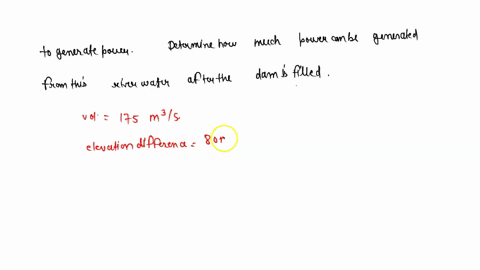 to generate power. Determine how much power can be generated
from this river water after the dam is filled.
vol = 175 m³/s
elevation difference = 80m